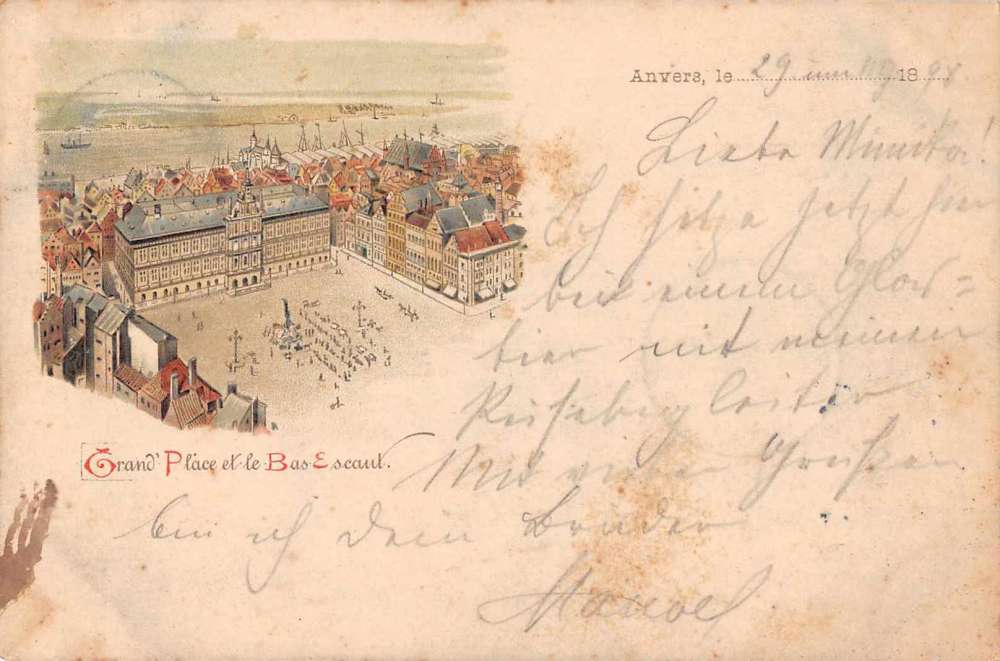 Anvers, le 29. 18 98
Liebe
Ich sitze jetzt hier
bei einem Glas=
bier mit meinem
Reisebegleiter
Mit vielen Grüßen
bin ich dein Bruder
Grand' Place et le Bas Escaut.